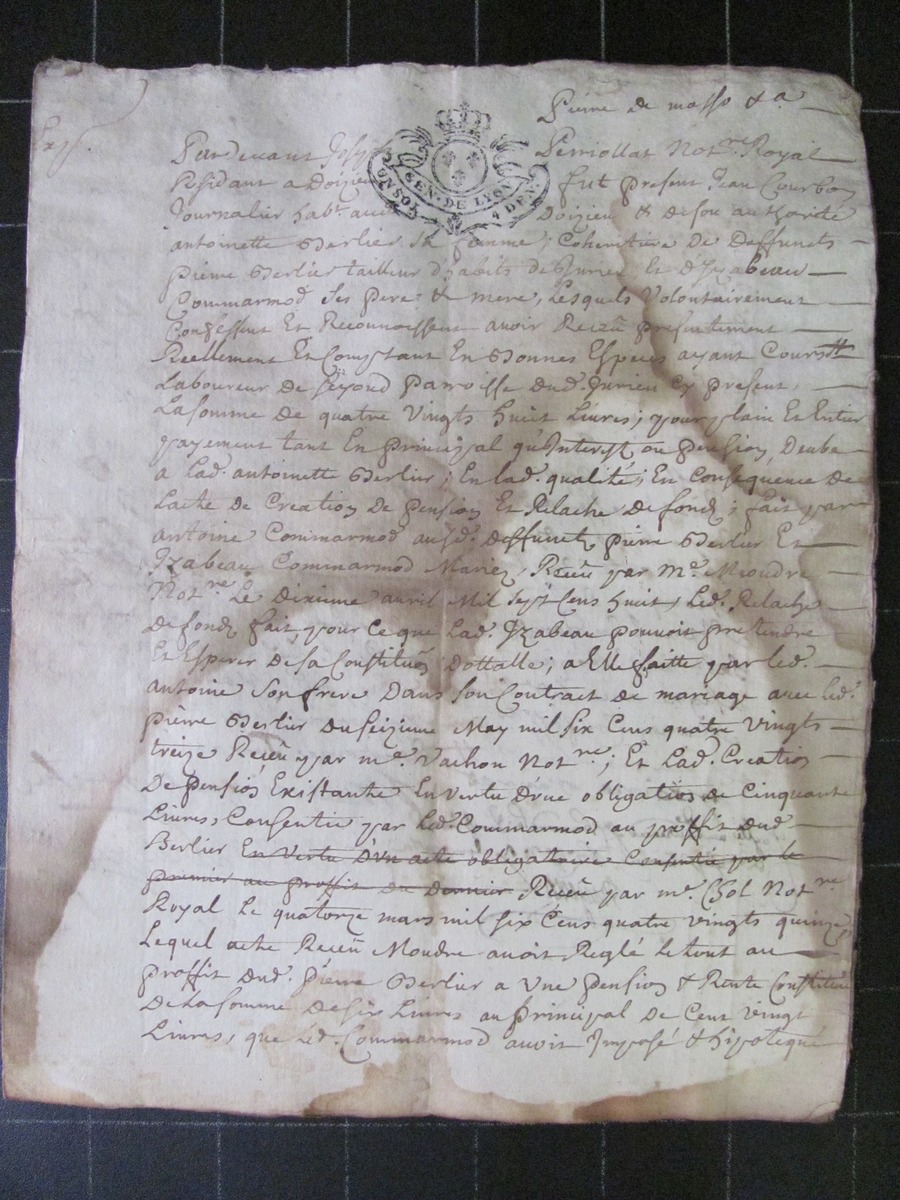 Exp.
Pierre de masso & a
Pardevant Perriollat Not.re Royal
Residant a Doizieu fut present Jean Courbon
GEN. DE LYON
UN SOL 4 DEN.
Journalier hab.t aud Doizieu & de son authorité
antoinette Berlier sa femme, Coheritiere de Deffunts
pierre Berlier tailleur d'habits de Jurieu Et d'Izabeau
Commarmod ses pere & mere, Lesquels Volontairement
Confessent Et Reconnoissent avoir Reçeu presentement
Reellement Et Comptant En Bonnes Especes ayant Cours
Laboureur de parroisse dud. Jurieu Cy present,
La somme de quatre Vingts huit Livres; pour plain Et Entier
payement tant En principal qu'Interest ou pension, Deube
a Lad. antoinette Berlier; En lad. qualité; En Consequence de
Lacte de Creation De pension Et Relache de fondz; fait par
antoine Commarmod ausd. deffunctz pierre Berlier Et
Izabeau Commarmod Mariez, Reçeu par M.e Moudre
Not.re Le Dixieme avril Mil sept Cens huit, Led. Relache
de fondz fait pour Ce que Lad. Izabeau pouvoit pretendre
Et Esperer de sa Constitu.on Dottalle; a Elle faitte par led.
antoine son frere Dans son Contract de mariage avec led.
pierre Berlier du seizieme May mil six Cens quatre vingts
treize Reçeu par m.e Vachon Not.re; Et Lad. Creation
De pension Existante En vertu d'vne obligation de Cinquante
Livres, Consentie par Led. Commarmod au proffit dud.
Berlier En vertu d'vn acte obligatoire Consentie par le
premier au proffit du dernier Reçeu par m.e Chol Not.re
Royal Le quatorze mars mil six Cens quatre vingts quinze,
Lequel acte Reçeu Moudre avoit Reglé Le tout au
proffit dud. pierre Berlier a Vne pension & Rente Constituée
De La somme de six Livres au Principal de Cent vingt
Livres, que Led. Commarmod avoit Imposé & hipotequé